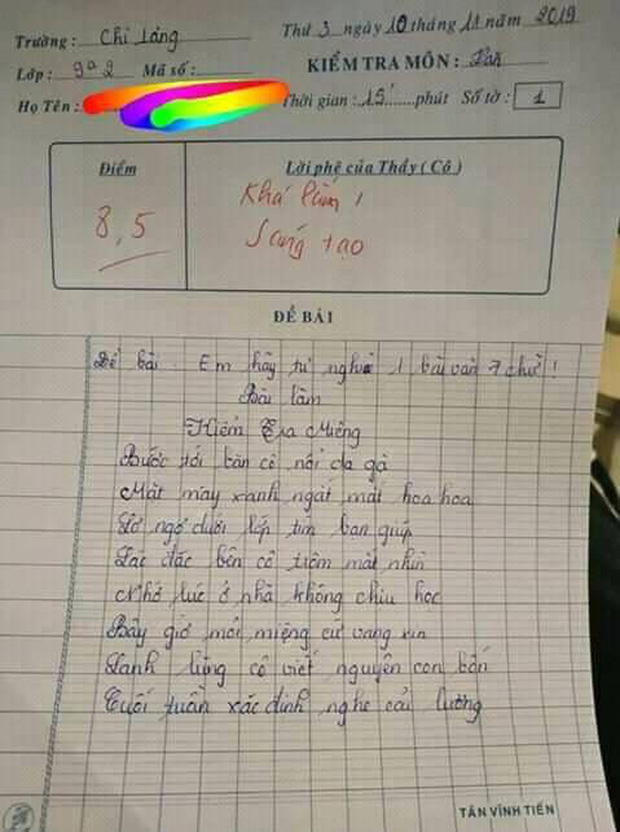 Trường : Chi Lăng
Thứ 3 ngày 10 tháng 11 năm 2019
Lớp : 9a2 Mã số :
KIỂM TRA MÔN : Văn
Họ Tên :
Thời gian : 15' phút Số tờ : 1
Điểm
Lời phê của Thầy ( Cô )
8,5
Khá lắm !
Sáng tạo
ĐỀ BÀI
Đề bài : Em hãy tự nghĩ 1 bài văn 7 chữ !
Bài làm
Kiểm Tra Miệng
Bước tới bàn cô nổi da gà
Mặt mày xanh ngắt mắt hoa hoa
Lơ ngơ dưới lớp tìm bạn giúp
Lác đác bên cô trộm mắt nhìn
Nhớ lúc ở nhà không chịu học
Bây giờ mới miệng cứ vang xin
Lạnh lùng cô viết nguyên con bốn
Cuối tuần xác định nghe cải lương
TÂN VĨNH TIẾN